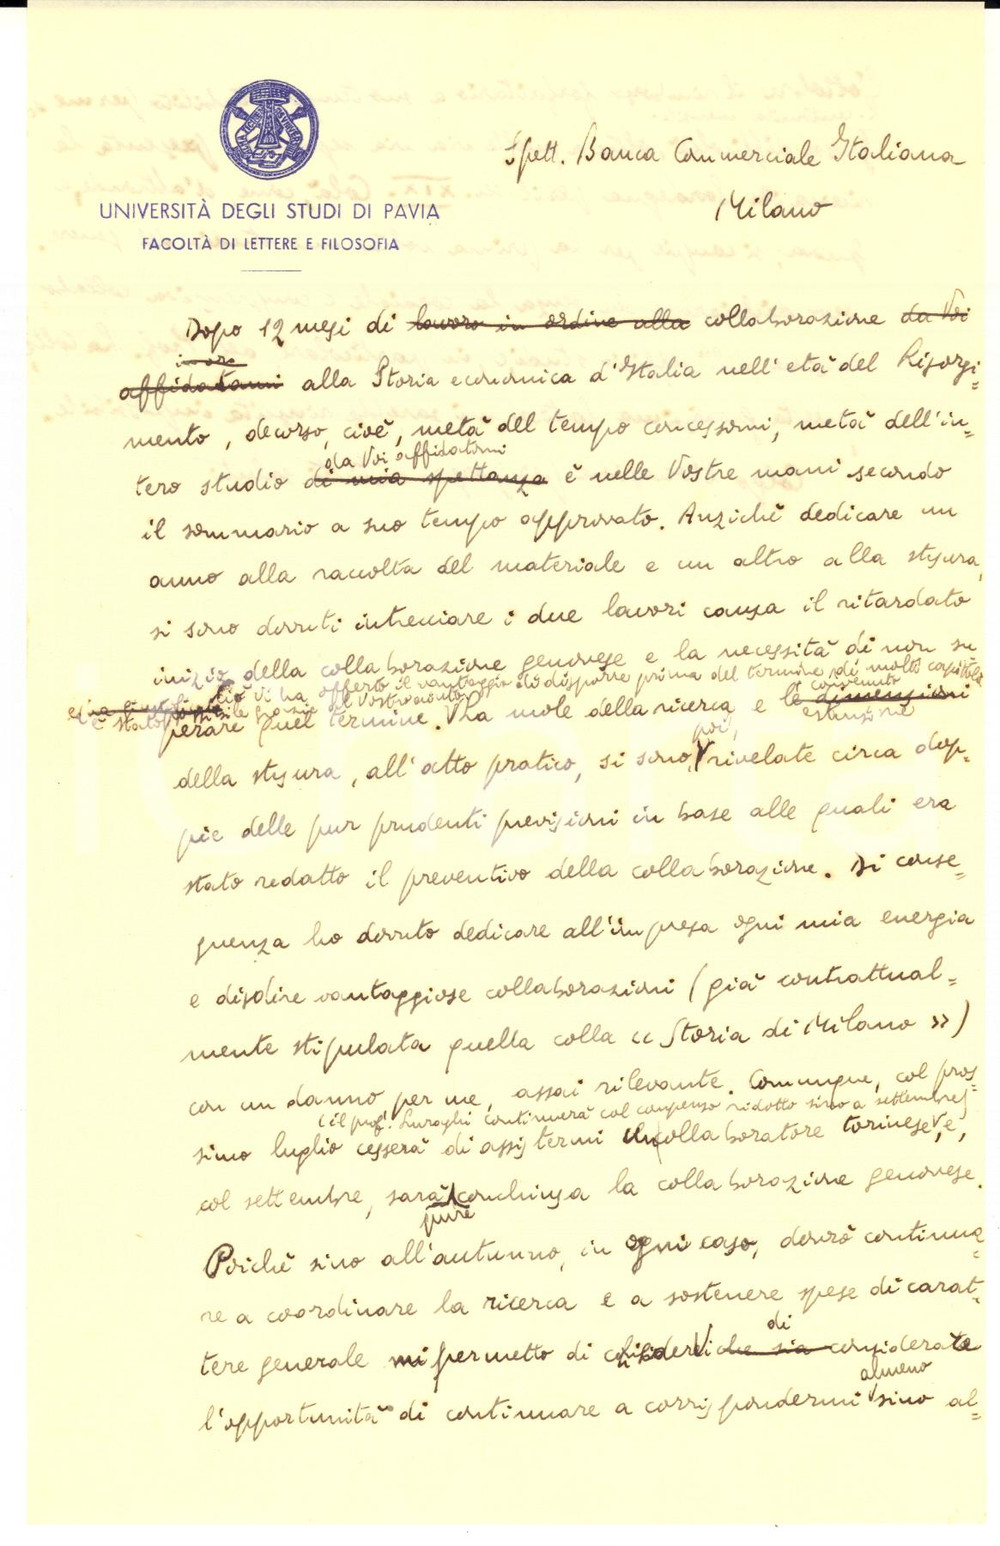 UNIVERSITÀ DEGLI STUDI DI PAVIA
FACOLTÀ DI LETTERE E FILOSOFIA
Spett. Banca Commerciale Italiana
Milano
Dopo 12 mesi di lavoro in ordine alla collaborazione da Voi
affidatami alla Storia economica d'Italia nell'età del Risorgi=
mento, decorso, cioè, metà del tempo concessomi, metà dell'in=
da Voi affidatomi
tero studio di mia spettanza è nelle Vostre mani secondo
il sommario a suo tempo approvato. Anziché dedicare un
anno alla raccolta del materiale e un altro alla stesura,
si sono dovuti intrecciare i due lavori causa il ritardato
inizio della collaborazione genovese e la necessità di non su=
ciò Vi ha offerto il vantaggio di disporre prima del termine di molti capitoli
è stato possibile grazie al Vostro aiuto
convenuto
perare quel termine. La mole della ricerca e le dimensioni
estensione
poi,
della stesura, all'atto pratico, si sono rivelate circa dop=
pie delle pur prudenti previsioni in base alle quali era
stato redatto il preventivo della collaborazione. Di conse=
guenza ho dovuto dedicare all'impresa ogni mia energia
e disdire vantaggiose collaborazioni (già contrattual=
mente stipulata quella colla «Storia di Milano»)
con un danno, per me, assai rilevante. Comunque, col pros=
(il prof. Luraghi continuerà col compenso ridotto sino a settembre)
simo luglio cesserà di assistermi il collaboratore torinese, e,
col settembre, sarà conchiusa la collaborazione genovese.
pure
Poiché sino all'autunno, in ogni caso, dovrò continua=
re a coordinare la ricerca e a sostenere spese di carat=
di
tere generale mi permetto di chiedervi che sia considerate
almeno
l'opportunità di continuare a corrispondermi sino al=